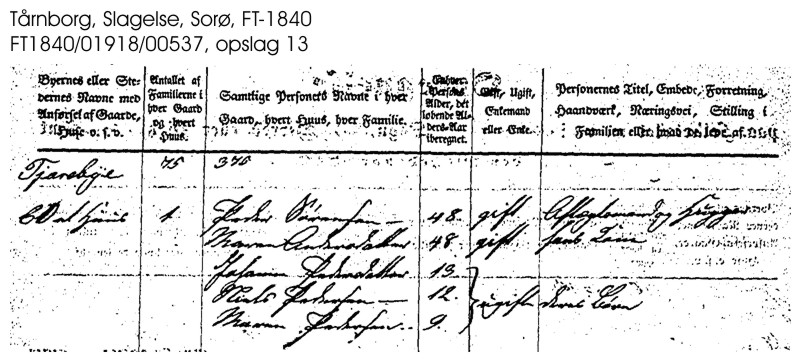 Tårnborg, Slagelse, Sorø, FT-1840
FT1840/01918/00537, opslag 13
Byernes eller Ste-
dernes Navne med
Anførsel af Gaarde,
Huse o. s. v.
Antallet af
Familierne i
hver Gaard
og hvert
Huus.
Samtlige Personers Navne i hver
Gaard, hvert Huus, hver Familie.
Enhver
Persons
Alder, det
løbende Al-
ders-Aar
iberegnet.
Gift, Ugift,
Enkemand
eller Enke.
Personernes Titel, Embede, Forretning,
Haandværk, Næringsvei, Stilling i
Familien eller hvad de leve af.
Tjæreby 75 375
Et Huus 1 Peder Sørensen 48 gift Aftægtsmand og Hugger
Maren Andersdatter 48 gift hans Kone
Johanne Pedersdatter 13
Niels Pedersen 12 ugift deres Børn
Maren Pedersen 9